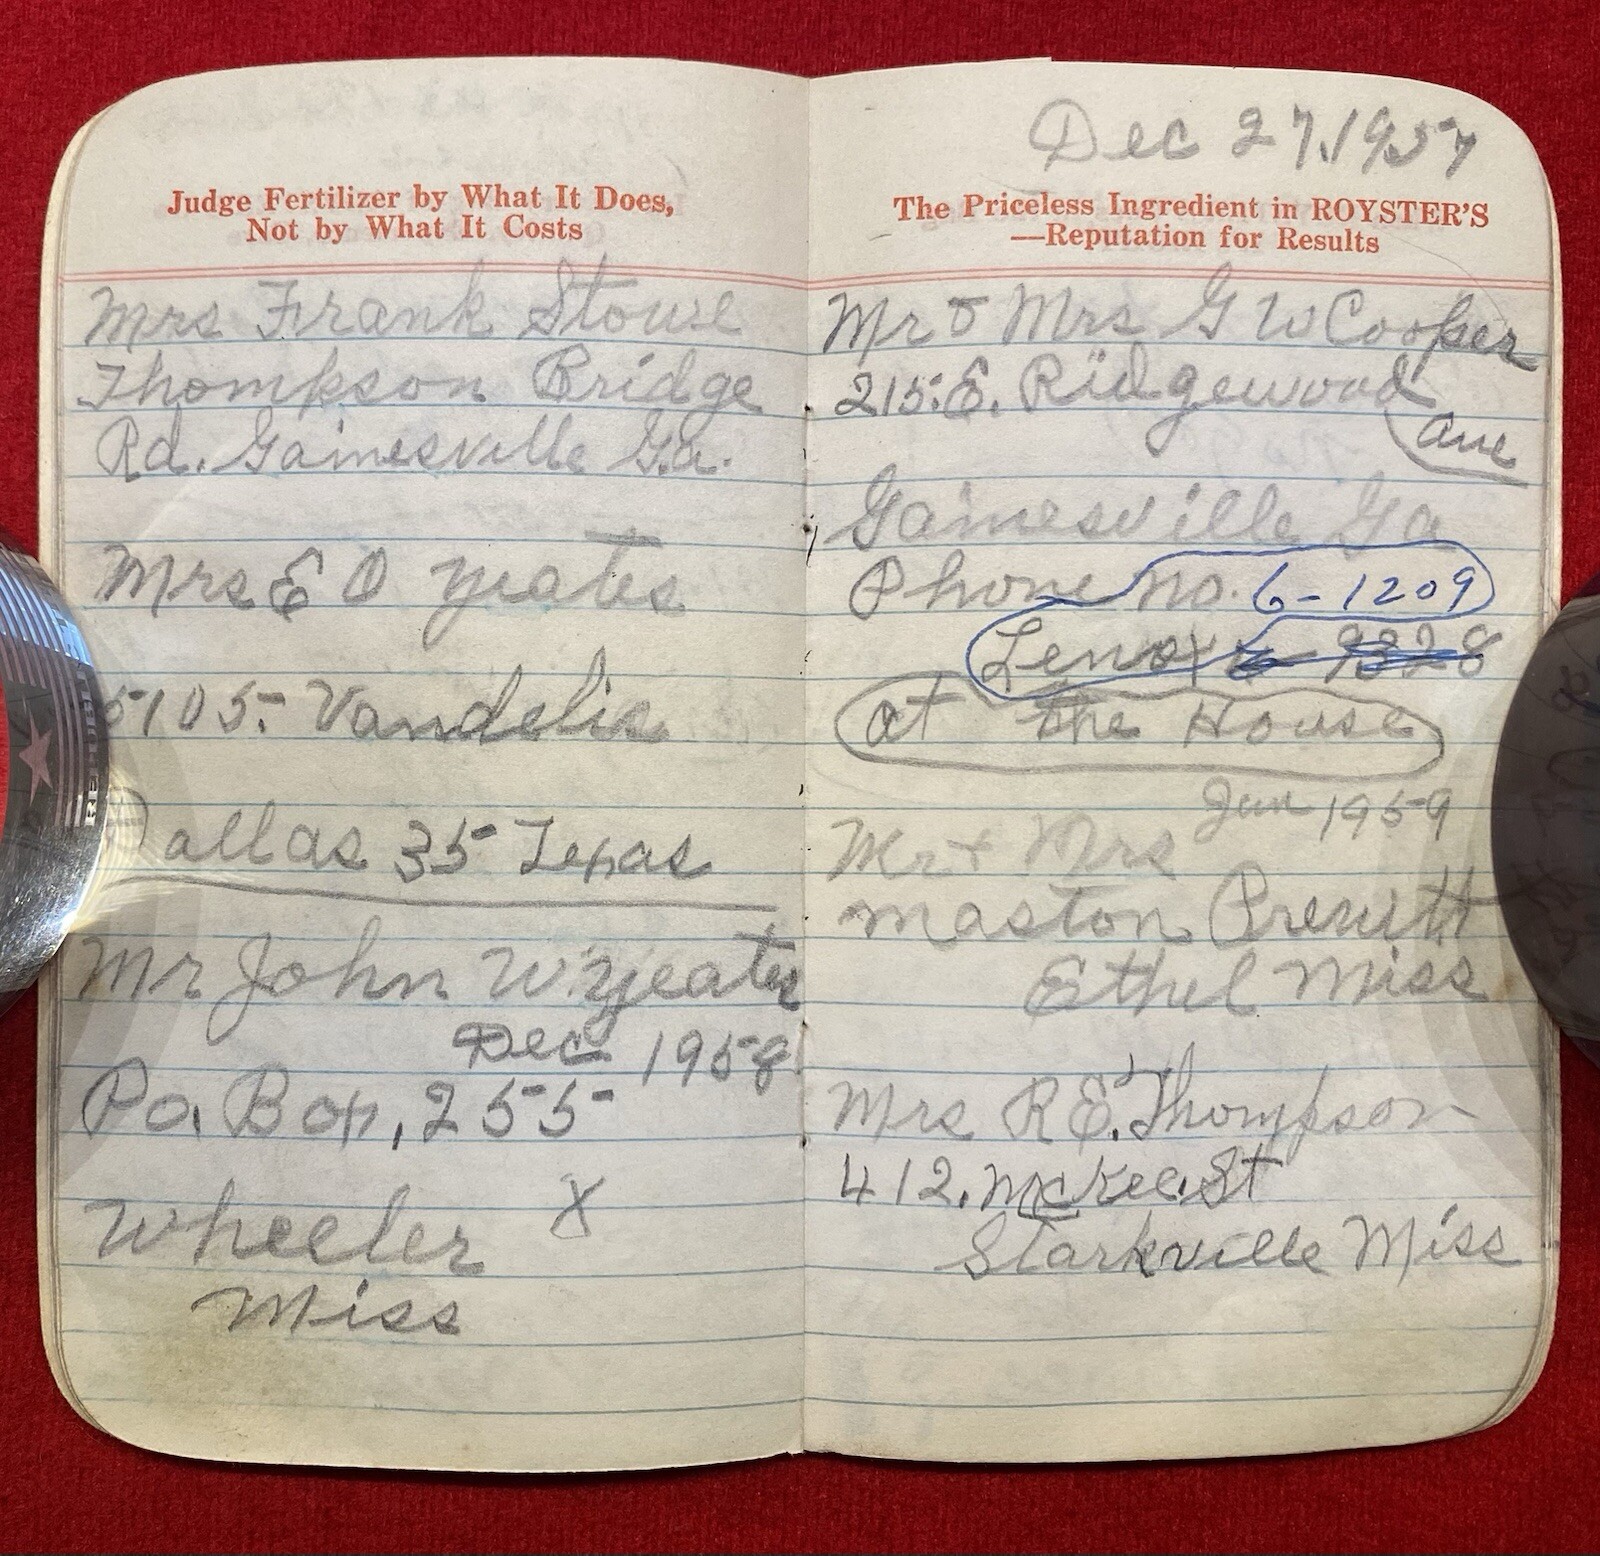 Judge Fertilizer by What It Does,
Not by What It Costs
Mrs Frank Stowe
Thompson Bridge
Rd. Gainesville Ga.
Mrs E O Yeates
5105 Vandelia
Dallas 35 Texas
Mr John W. Yeates
Dec 1958
Po. Box, 255
Wheeler X
Miss
Dec 27, 1957
The Priceless Ingredient in ROYSTER'S
—Reputation for Results
Mr & Mrs G W Cooper
215 E. Ridgewood
Ave
Gainesville Ga
Phone no. 6-1209
Lenox 6 9328
at the House
Jan 1959
Mr + Mrs
Maston Prewitt
Ethel Miss
Mrs R E. Thompson
412. McKee. St
Starkville Miss